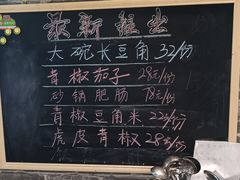 最新推出
大碗长豆角 32/份
青椒茄子 28元/份
砂锅肥肠 78元/份
青椒豆角米 22元/份
虎皮青椒 28元/份